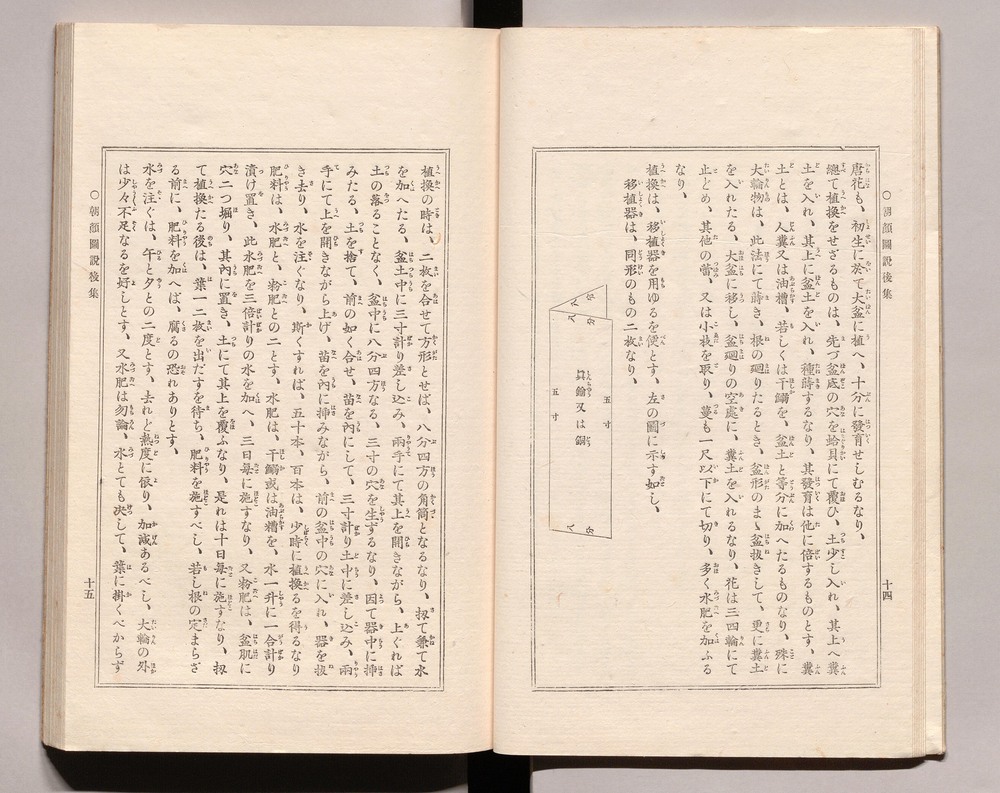 ○朝顔圖説後集
十四
唐花も、初生に於て大盆に植へ、十分に發育せしむるなり、
總て植換をせざるものは、先づ盆底の穴を蛤貝にて覆ひ、土少し入れ、其上へ糞
土を入れ、其上に盆土を入れ、種蒔するなり、其發育は他に倍するものとす、糞
土とは、人糞又は油糟、若しくは干鰯を、盆土と等分に加へたるものなり、殊に
大輪物は、此法にて蒔き、根の廻りたるとき、盆形のまゝ盆拔きして、更に糞土
を入れたる、大盆に移し、盆廻りの空處に、糞土を入れるなり、花は三四輪にて
止どめ、其他の蕾、又は小枝を取り、蔓も一尺以下にて切り、多く水肥を加ふる
なり、
植換は、移植器を用ゆるを便とす、左の圖に示す如し、
移植器は、同形のもの二枚なり、
八分
八分
五寸
眞鍮又は銅
五寸
八分
植換の時は、二枚を合せて方形とせば、八分四方の角筒となるなり、扨て兼て水
を加へたる、盆土中に三寸計り差し込み、兩手にて其上を開きながら、上ぐれば
土の落ることなく、盆中に八分四方なる、三寸の穴を生ずるなり、因て器中に挿
みたる、土を捨て、前の如く合せ、苗を內にして、三寸計り土中に差し込み、兩
手にて上を開きながら上げ、苗を內に挿みながら、前の盆中の穴に入れ、器を拔
き去り、水を注ぐなり、斯くすれば、五十本、百本は、少時に植換るを得るなり
肥料は、水肥と、粉肥との二とす、水肥は、干鰯或は油糟を、水一升に一合計り
漬け置き、此水肥を三倍計りの水を加へ、三日每に施すなり、又粉肥は、盆肌に
穴二つ堀り、其內に置き、土にて其上を覆ふなり、是れは十日每に施すなり、扨
て植換たる後は、葉一二枚を出だすを待ち、肥料を施すべし、若し根の定まらざ
る前に、肥料を加へば、腐るの恐れありとす、
水を注ぐは、午と夕との二度とす、去れど熱度に依り、加減あるべし、大輪の外
は少々不足なるを好しとす、又水肥は勿論、水とても决して、葉に掛くべからず
○朝顔圖説後集
十五